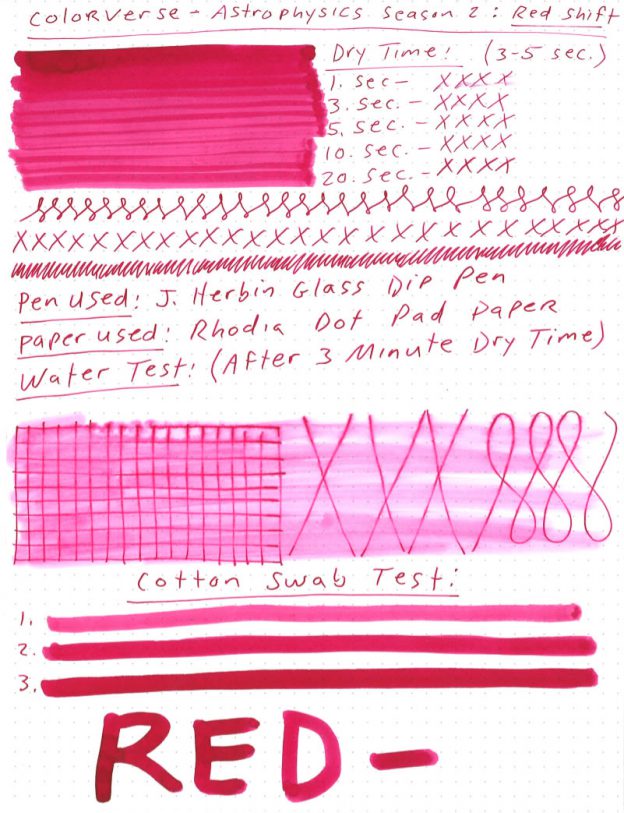 Colorverse - Astrophysics Season 2: Red Shift
Dry Time: (3-5 sec.)
1. sec - XXXX
3. sec. - XXXX
5. sec. - XXXX
10. sec. - XXXX
20. sec. - XXXX
XXXXXXXXXXXXXXXXXXXXXXXXXXXX
Pen used: J. Herbin Glass Dip Pen
Paper used: Rhodia Dot Pad Paper
Water Test: (After 3 Minute Dry Time)
XXX
Cotton Swab Test:
1.
2.
3.
RED-